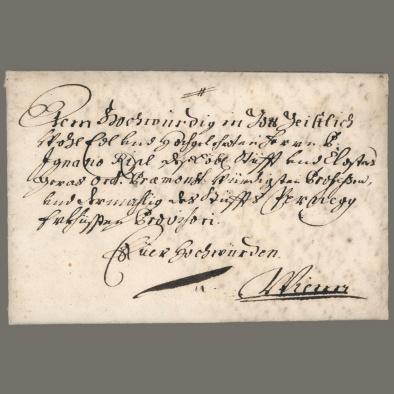 Dem Hochwürdig in Gott Geistlich
Wohl Edl und Hochgelehrten Herrn P.
Ignatio des löbl. Stüfft und Closter
Geras Ord. Præmonst. würdigsten
und dermahlig des Stüffts Pernegg
Euer Hochwürden.
Wienn